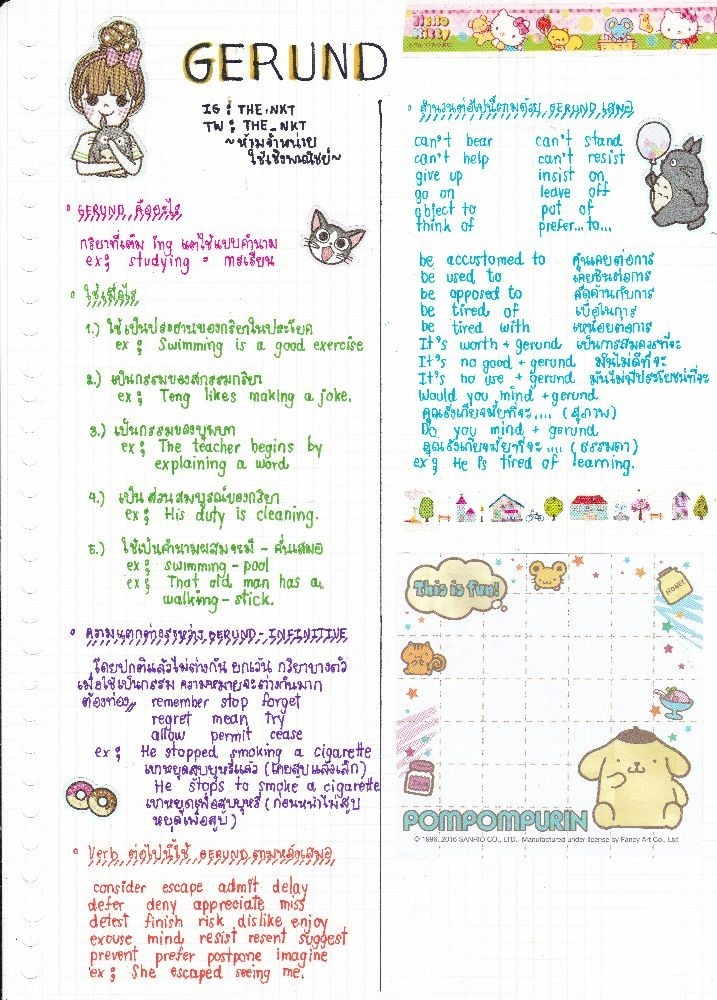 GERUND
IG : THE.NKT
TW : THE_NKT
~ห้ามจำหน่าย
ใช้เชิงพาณิชย์~
GERUND คืออะไร
กริยาที่เติม ing แต่ใช้แบบคำนาม
ex; studying = การเรียน
ใช้เมื่อไร
1.) ใช้เป็นประธานของกริยาในประโยค
ex; Swimming is a good exercise
2.) เป็นกรรมของสกรรมกริยา
ex; Teng likes making a joke.
3.) เป็นกรรมของบุพบท
ex; The teacher begins by
explaining a word
4.) เป็นส่วนสมบูรณ์ของกริยา
ex; His duty is cleaning.
5.) ใช้เป็นคำนามผสมจะมี - คั่นเสมอ
ex; swimming - pool
ex; That old man has a
walking - stick.
ความแตกต่างระหว่าง GERUND - INFINITIVE
โดยปกติแล้วไม่ต่างกัน ยกเว้น กริยาบางตัว
เมื่อใช้เป็นกรรม ความหมายจะต่างกันมาก
ต้องท่อง,, remember stop forget
regret mean try
allow permit cease
ex; He stopped smoking a cigarette
เขาหยุดสูบบุหรี่แล้ว (เคยสูบแล้วเลิก)
He stops to smoke a cigarette
เขาหยุดเพื่อสูบบุหรี่ (ก่อนหน้าไม่สูบ
หยุดเพื่อสูบ)
Verb ต่อไปนี้ใช้ GERUND ตามหลังเสมอ
consider escape admit delay
defer deny appreciate miss
detest finish risk dislike enjoy
excuse mind resist resent suggest
prevent prefer postpone imagine
ex; She escaped seeing me.
Hello Kitty
สำนวนต่อไปนี้ตามด้วย GERUND เสมอ
can't bear can't stand
can't help can't resist
give up insist on
go on leave off
object to put of
think of prefer...to...
be accustomed to คุ้นเคยต่อการ
be used to เคยชินต่อการ
be opposed to คัดค้านกับการ
be tired of เบื่อในการ
be tired with เหนื่อยต่อการ
It's worth + gerund เป็นการสมควรที่จะ
It's no good + gerund มันไม่ดีที่จะ
It's no use + gerund มันไม่มีประโยชน์ที่จะ
Would you mind + gerund
คุณรังเกียจมั้ยที่จะ.... (สุภาพ)
Do you mind + gerund
คุณรังเกียจมั้ยที่จะ.... (ธรรมดา)
ex; He is tired of learning.
This is fun!
HONEY
POMPOMPURIN
© 1996, 2016 SANRIO CO., LTD. Manufactured under license by Fancy Art Co., Ltd